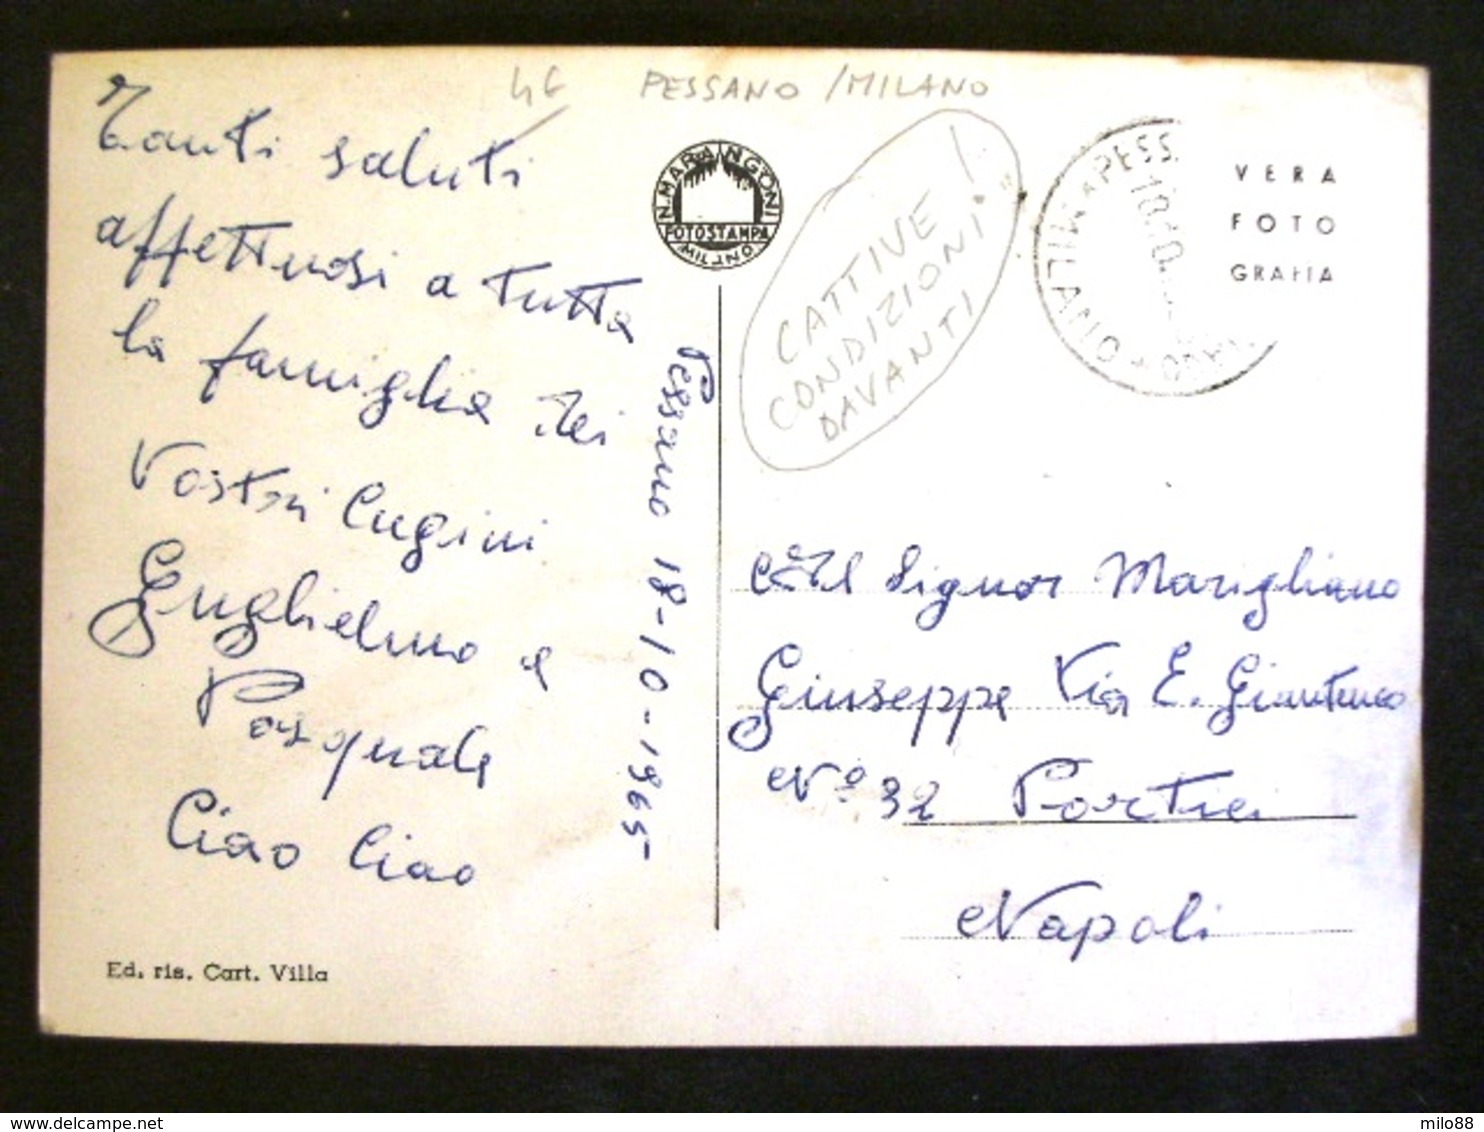 4€ PESSANO / MILANO
Tanti saluti
affettuosi a tutta
la famiglia dei
Vostri Cugini
Guglielmo e
Pasquale
Ciao Ciao
Pessano 18-10-1965
Ed. ris. Cart. Villa
N. MARANGONI
FOTOSTAMPA
MILANO
CATTIVE
CONDIZIONI
DAVANTI!
PESS
MILANO
18.10
VERA
FOTO
GRAFIA
Al Signor Marigliano
Giuseppe Via E. Gianturco
N° 32 Portici
Napoli
delcampe.net
milo88